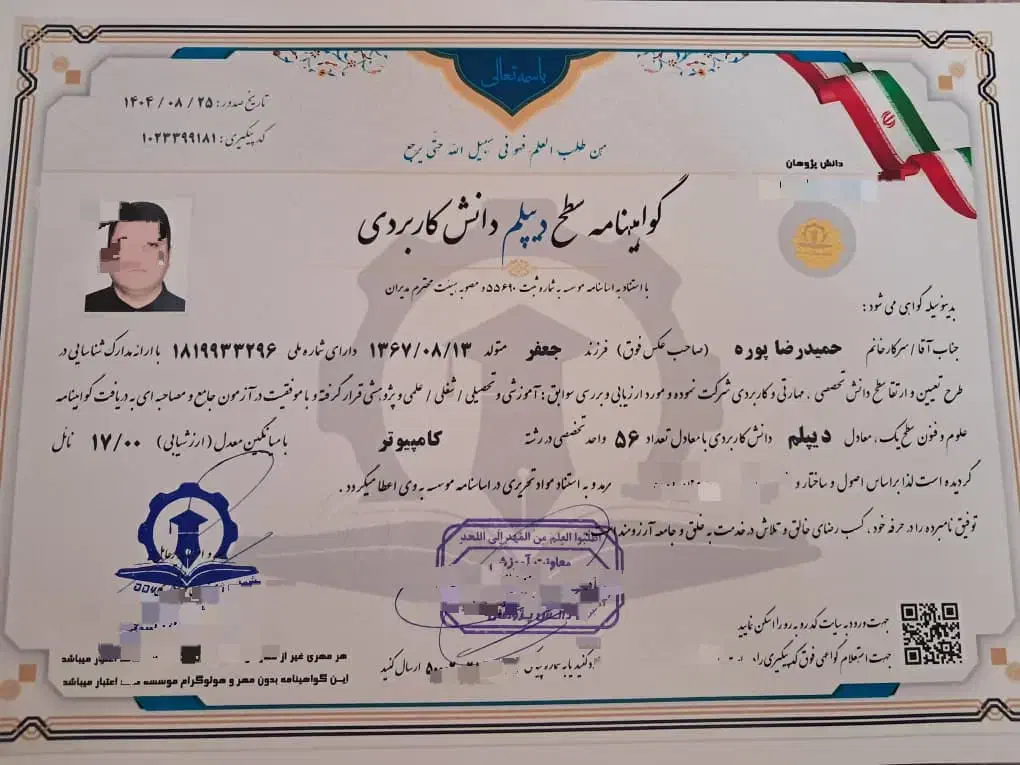 باسمه تعالی
تاریخ صدور: ۱۴۰۴/۰۸/۲۵
کد پیگیری: ۱۰۲۳۳۹۹۱۸۱
من طلب العلم فهو فی سبیل الله حتّی یرجع
دانش پژوهان
گواهینامه سطح دیپلم دانش کاربردی
با استناد به اساسنامه موسسه به شماره ثبت ۵۵۶۹۰ و مصوبه هیئت محترم مدیران
بدینوسیله گواهی می شود:
جناب آقا / سرکار خانم حمیدرضا پوره (صاحب عکس فوق) فرزند جعفر متولد ۱۳۶۷/۰۸/۱۳ دارای شماره ملی ۱۸۱۹۹۳۳۲۹۶ با ارائه مدارک شناسایی در
طرح تعیین و ارتقا سطح دانش تخصصی، مهارتی و کاربردی شرکت نموده و مورد ارزیابی و بررسی سوابق: آموزشی و تحصیلی / شغلی / علمی و پژوهشی قرار گرفته و با موفقیت در آزمون جامع و مصاحبه ای به دریافت گواهینامه
علوم و فنون سطح یک، معادل دیپلم دانش کاربردی با معادل تعداد ۵۶ واحد تخصصی در رشته کامپیوتر با میانگین معدل (ارزشیابی) ۱۷/۰۰ نائل
گردیده است لذا براساس اصول و ساختار و برمد و به استناد مواد تحریری در اساسنامه موسسه به وی اعطا میگردد.
توفیق نامبرده را در حرفه خود، کسب رضای خالق و تلاش در خدمت به خلق و جامعه آرزومند است
اطلبوا العلم من المهد إلی اللحد
معاونت آموزش
دانش پژوهان
جهت ورود به سایت کد روبه رو را اسکن نمایید
جهت استعلام گواهی فوق کد پیگیری را در
ارسال کنید
هر مهری غیر از اعتبار میباشد
این گواهینامه بدون مهر و هولوگرام موسسه اعتبار میباشد